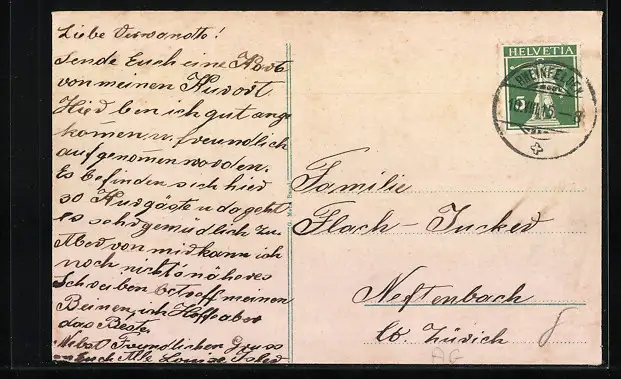 Liebe Verwandte!
Sende Euch eine Karte
von meinen Kurort.
Hier bin ich gut ange
komen u. freundlich
aufgenomen worden.
Es befinden sich hier
30 Kurgäste u da geht
es sehr gemüdlich zu.
Aber von mir kann ich
noch nicht näheres
Schreiben betreff meinen
Beinen, ich Hoffe aber
das Beste,
Nebst Freundlichen Gruss
an Euch Alle Louise
HELVETIA
5
RHEINFELDEN
Familie
Flach-Jucker
Neftenbach
Ct. Zürich
AG